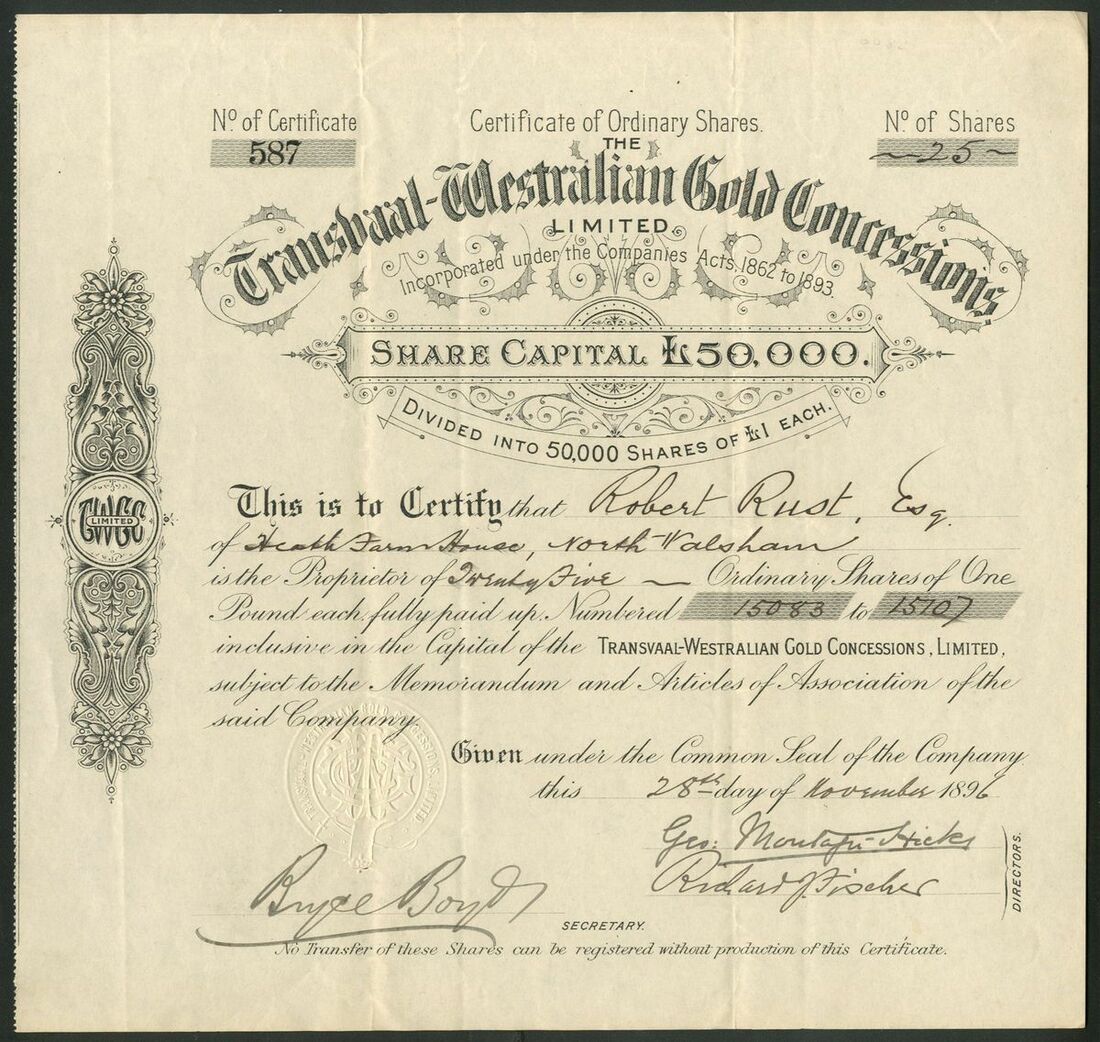 Nº of Certificate
587
Certificate of Ordinary Shares.
Nº of Shares
~25~
THE
Transvaal-Westralian Gold Concessions
LIMITED
Incorporated under the Companies Acts, 1862 to 1893.
SHARE CAPITAL £50,000.
DIVIDED INTO 50,000 SHARES OF £1 EACH.
This is to Certify that Robert Rust, Esq.
of Heath Farm House, North Walsham
is the Proprietor of Twenty Five — Ordinary Shares of One
Pound each, fully paid up. Numbered 15083 to 15107
inclusive in the Capital of the TRANSVAAL-WESTRALIAN GOLD CONCESSIONS, LIMITED,
subject to the Memorandum and Articles of Association of the
said Company.
TWGC
LIMITED
TRANSVAAL-WESTRALIAN GOLD CONCESSIONS, LIMITED
Given under the Common Seal of the Company
this 28th day of November 1896
Geo: Montagu-Hicks
Richard J. Fischer
DIRECTORS.
Bryce Boyd
SECRETARY.
No Transfer of these Shares can be registered without production of this Certificate.